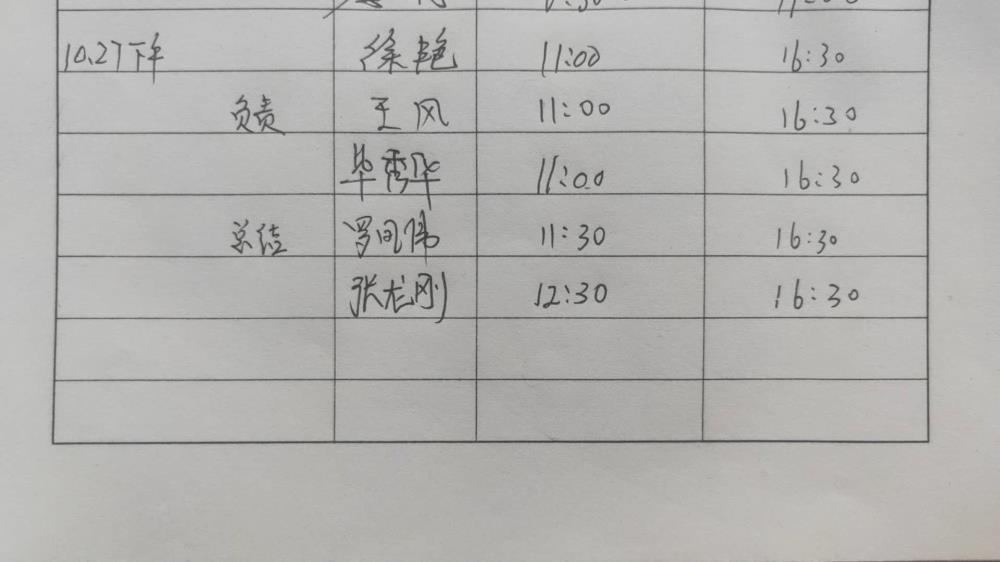 10.27下午 徐艳 11:00 16:30
负责 王风 11:00 16:30
毕秀华 11:00 16:30
总结 罗同伟 11:30 16:30
张龙刚 12:30 16:30